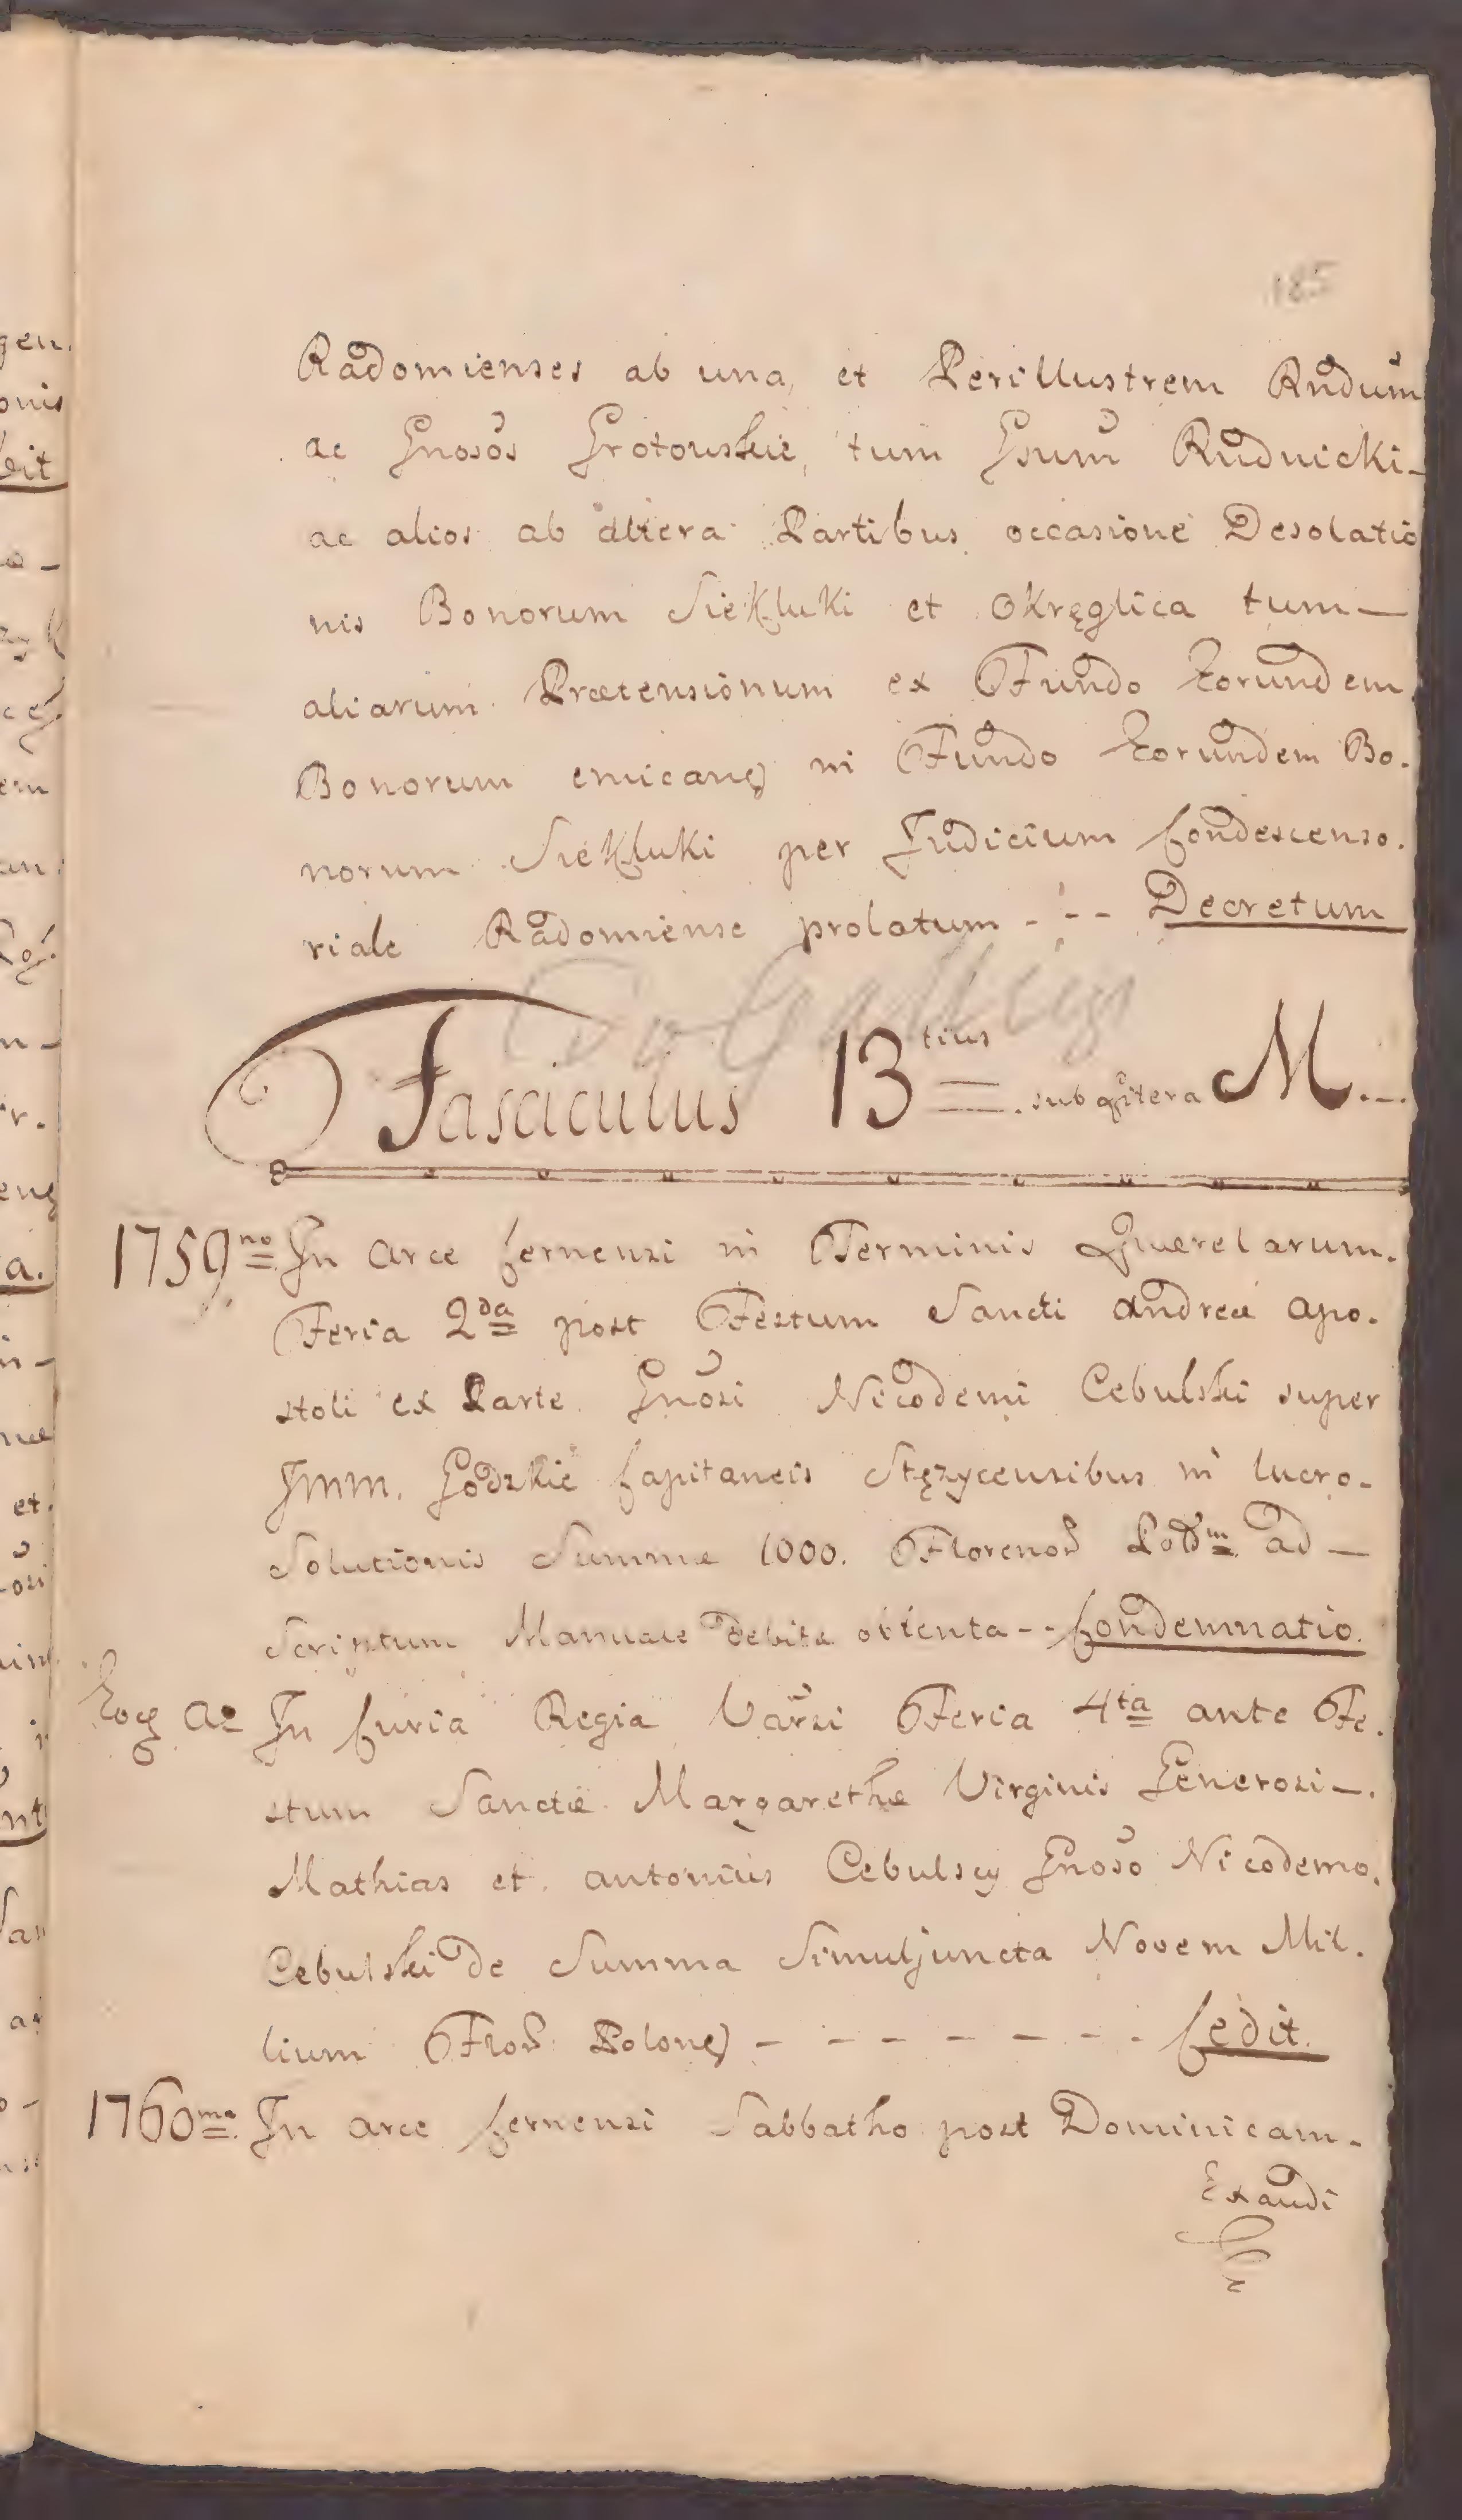 185
Radomienses ab una, et Perillustrem Rndum
ac Gnosos Grotouskie, tum Gsum Rudnicki-
ac alios ab altera Partibus occasione Desolatio
nis Bonorum Siekluki et Okręglica tum—
aliarum Prætensionum ex Fundo Eorundem
Bonorum emican in Fundo Eorundem Bo.
norum Siekluki per Judicium Condescenso.
riale Radomiense prolatum - - - Decretum
Fasciculus 13tius sub Littera M...
1759no In Arce Cernensi in Terminis Querelarum.
Feria 2da post Festum Sancti Andreæ Apo.
stoli ex Parte Gnosi Nicodemi Cebulski super
Jmm. Godzkie Capitaneis Stęzycensibus in lucro-
Solutionis Summæ 1000. Floreno ad —
Scriptum Manuale debitæ obtenta -- Condemnatio.
Eo Ae In Curia Regia Varsi Feria 4ta ante Fe.
stum Sanctæ Margarethæ Virginis Generosi -.
Mathias et Antonius Cebulscy Gnoso Nicodemo.
Cebulski de Summa Simuljuncta Novem Mil.
lium Flo Polon - - - - - - - Cedit.
1760mo In Arce Cernensi Sabbatho post Dominicam-
Exaudi